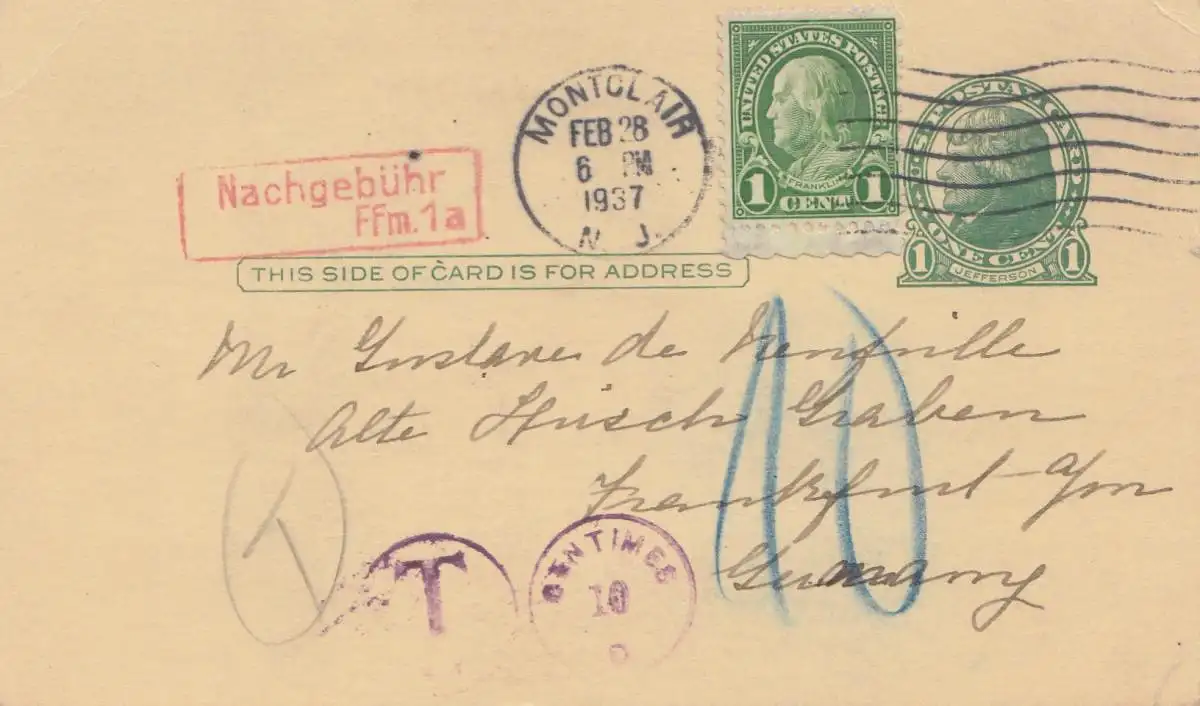 UNITED STATES POSTAGE
FRANKLIN
1 CENT 1
MONTCLAIR
FEB 28
6 PM
1937
N. J.
U.S. POSTAL CARD
ONE CENT
1 JEFFERSON 1
Nachgebühr
Ffm. 1a
THIS SIDE OF CARD IS FOR ADDRESS
Mr Gustave de
Alte Graben
Frankfurt a/m
Germany
10
T
T
CENTIMES
10